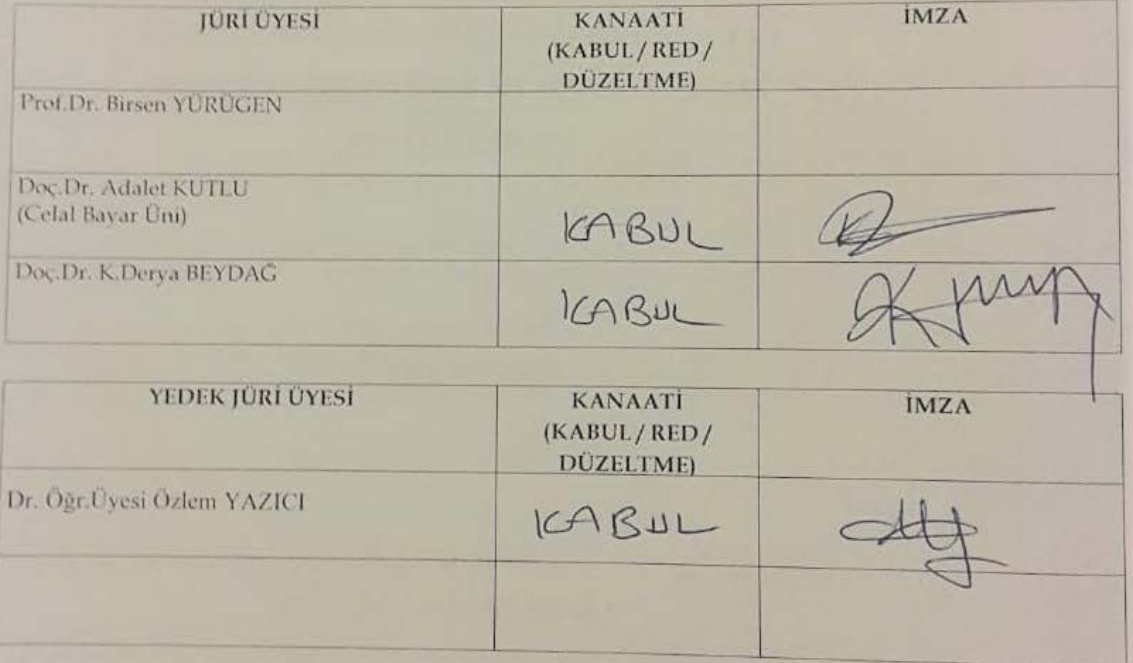 JÜRİ ÜYESİ
KANAATİ
(KABUL / RED /
DÜZELTME)
İMZA
Prof.Dr. Birsen YÜRÜGEN
Doç.Dr. Adalet KUTLU
(Celal Bayar Üni)
KABUL
Doç.Dr. K.Derya BEYDAĞ
KABUL
YEDEK JÜRİ ÜYESİ
KANAATİ
(KABUL / RED /
DÜZELTME)
İMZA
Dr. Öğr.Üyesi Özlem YAZICI
KABUL